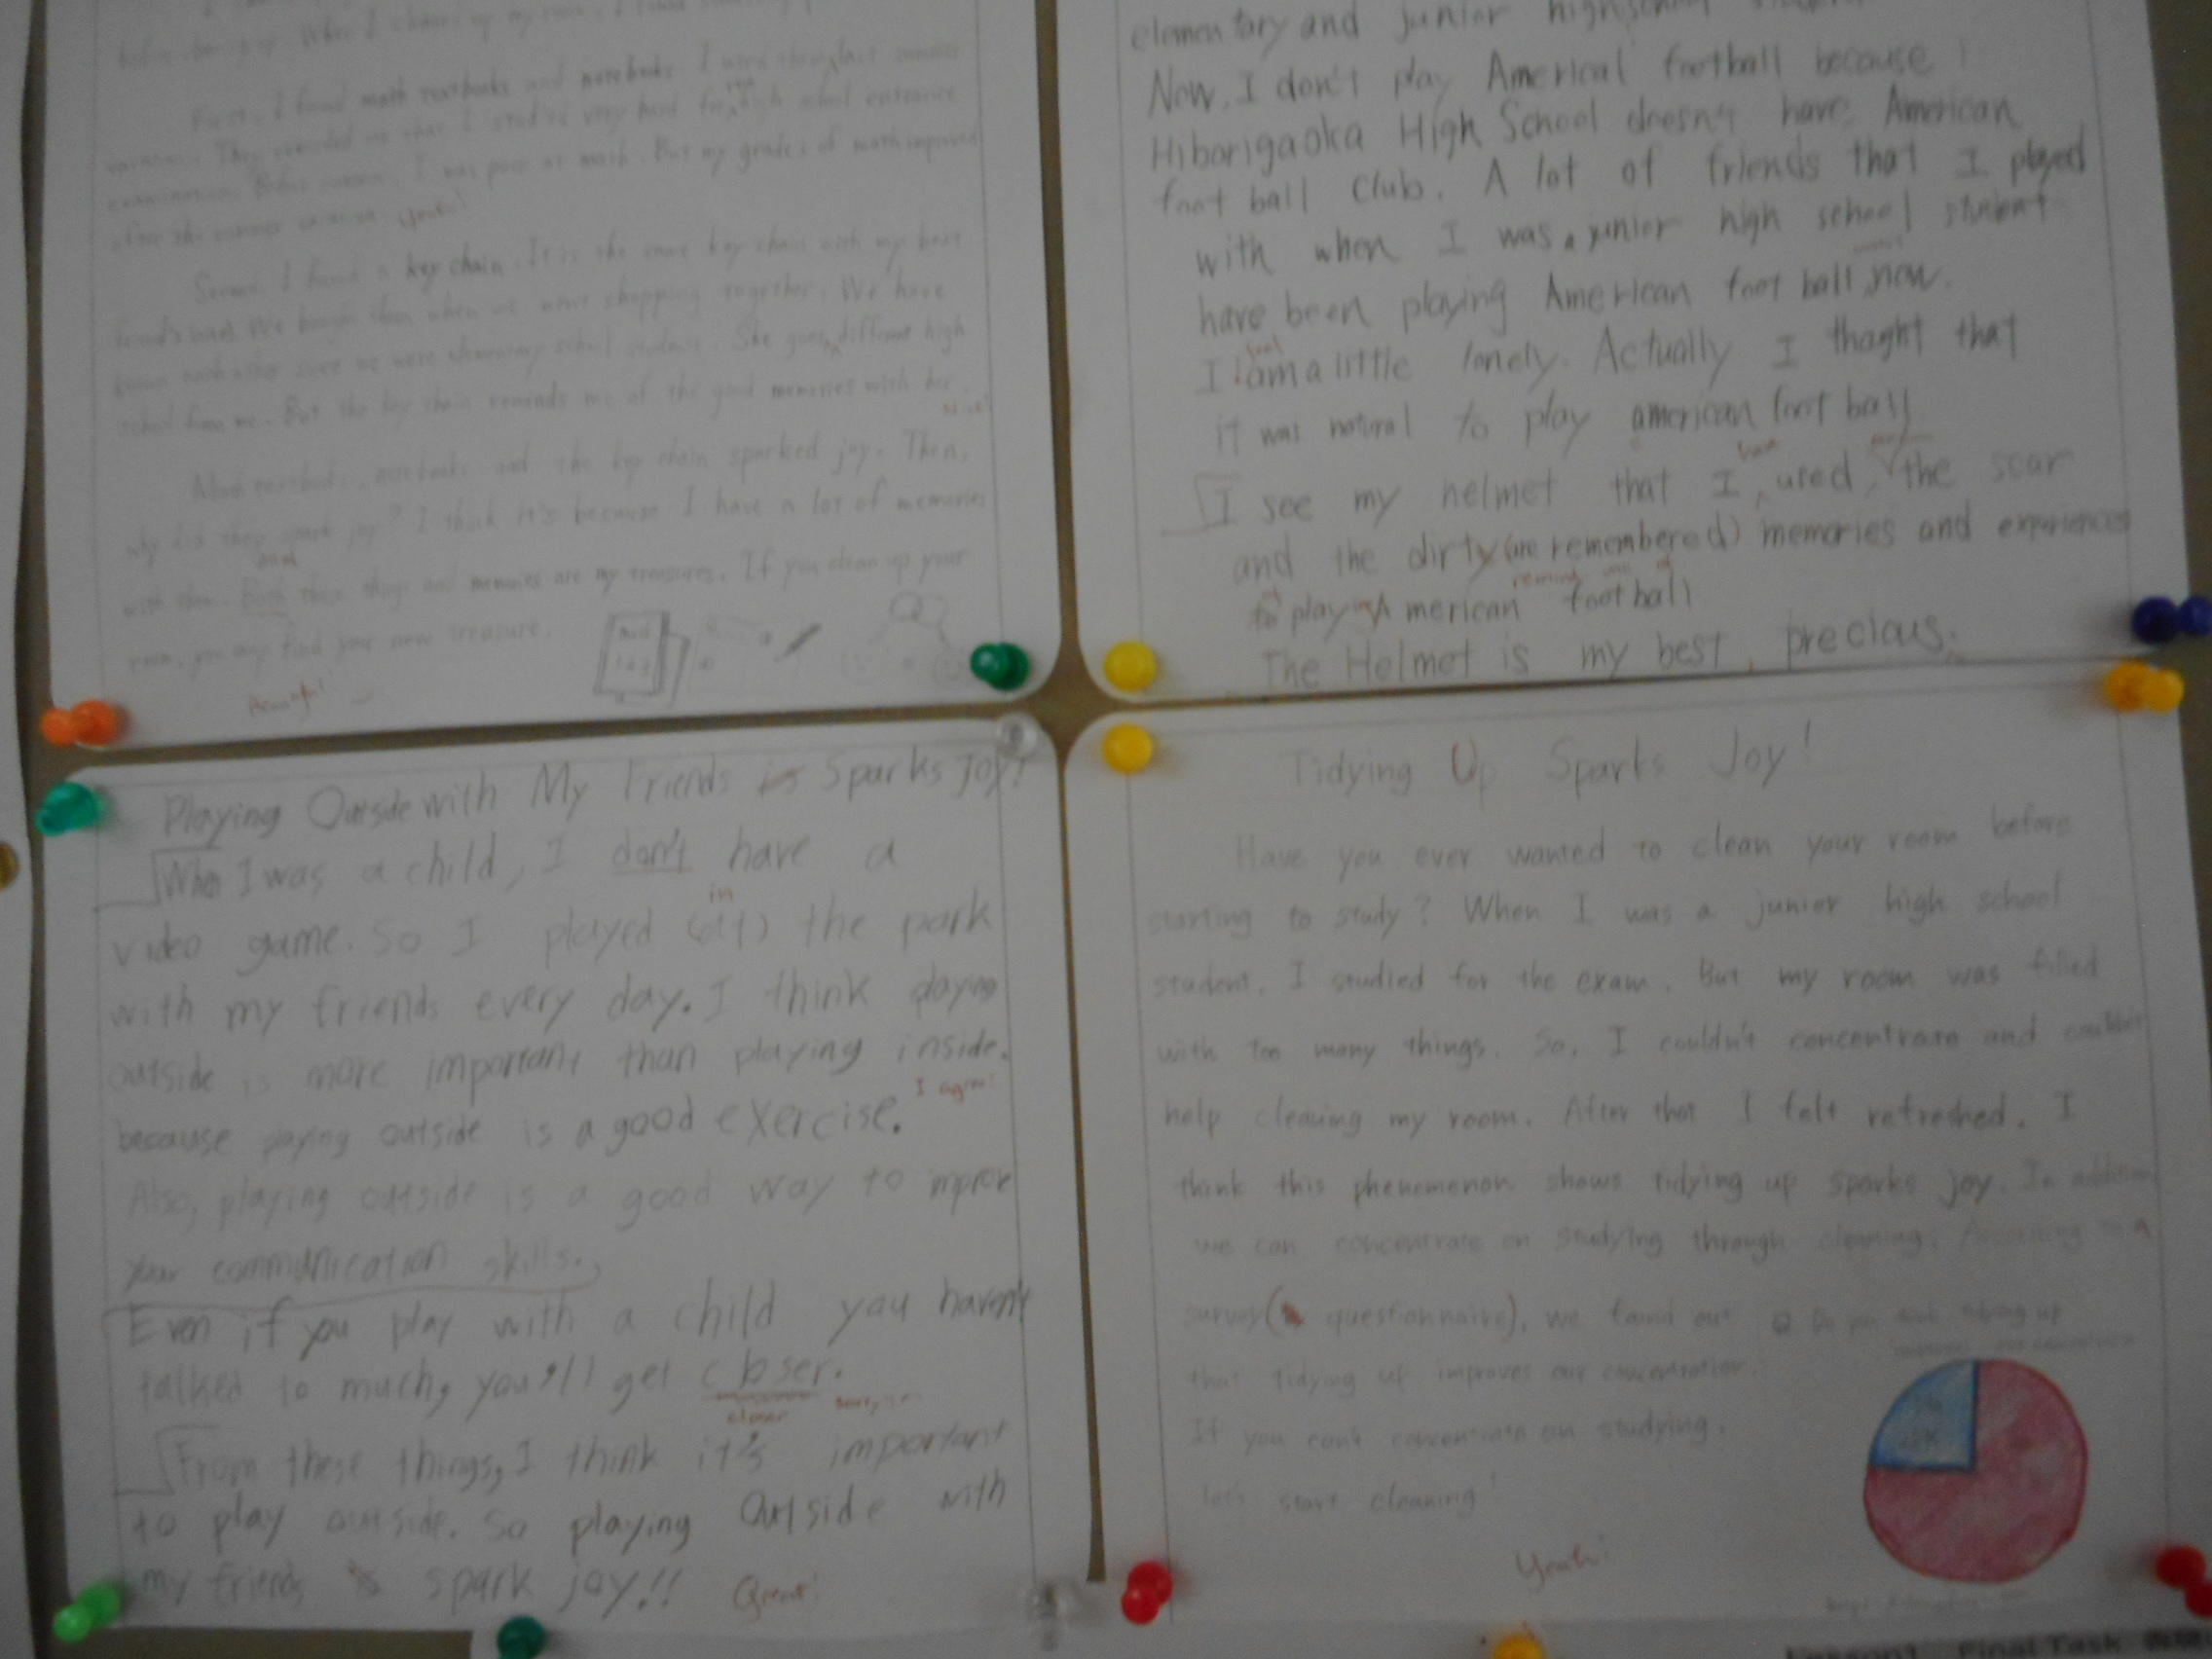 First, I found math textbooks and notebooks. I used last summer
vacation. They reminded me that I studied very hard for high school entrance
examination. Before summer, I was poor at math. But my grades of math improved
after the summer vacation. Yeah!
Second, I found a key chain. It is the same key chain with my best
friend's We bought them when we were shopping together. We have
known each other since we were elementary school students. She goes different high
school from me. But the key chain reminds me of the good memories with her.
Nice!
Math textbooks, notebooks and the key chain sparked joy. Then,
why did they spark joy? I think it's because I have a lot of memories
with them. Both these things and memories are my treasures. If you clean up your
and
room, you may find your new treasure.
Beautiful
elementary and junior high school
Now, I don't play Americal football because
Hibarigaoka High School doesn't have American
foot ball Club. A lot of friends that I played
with when I was a junior high school student
have been playing American foot ball now.
feel
I am a little lonely. Actually I thaght that
it was natural to play american foot ball
have
I see my helmet that I used, the scar
and the dirty (are remembered) memories and experiences
remind me of
to play American football
The Helmet is my best, precious.
Playing Outside with My Friends is Sparks joy!
When I was a child, I don't have a
in
video game. So I played (at) the park
with my friends every day. I think playing
outside is more important than playing inside.
I agree!
because playing outside is a good exercise.
Also, playing outside is a good way to improve
your communication skills.
Even if you play with a child you haven't
talked to much, you'll get cbser.
closer
From these things, I think it's important
to play outside. So playing Outside with
my friends is spark joy!! Great!
Tidying Up Sparks Joy!
Have you ever wanted to clean your room before
starting to study? When I was a junior high school
student, I studied for the exam. But my room was filled
with too many things. So, I couldn't concentrate and couldn't
help cleaning my room. After that I felt refreshed. I
think this phenomenon shows tidying up sparks joy. In addition
we can concentrate on studying through cleaning. According to A
survey (a questionnaire), we found out
that tidying up improves our concentration.
If you can't concentrate on studying,
let's start cleaning!
Yeah!
Lesson1 Final Task